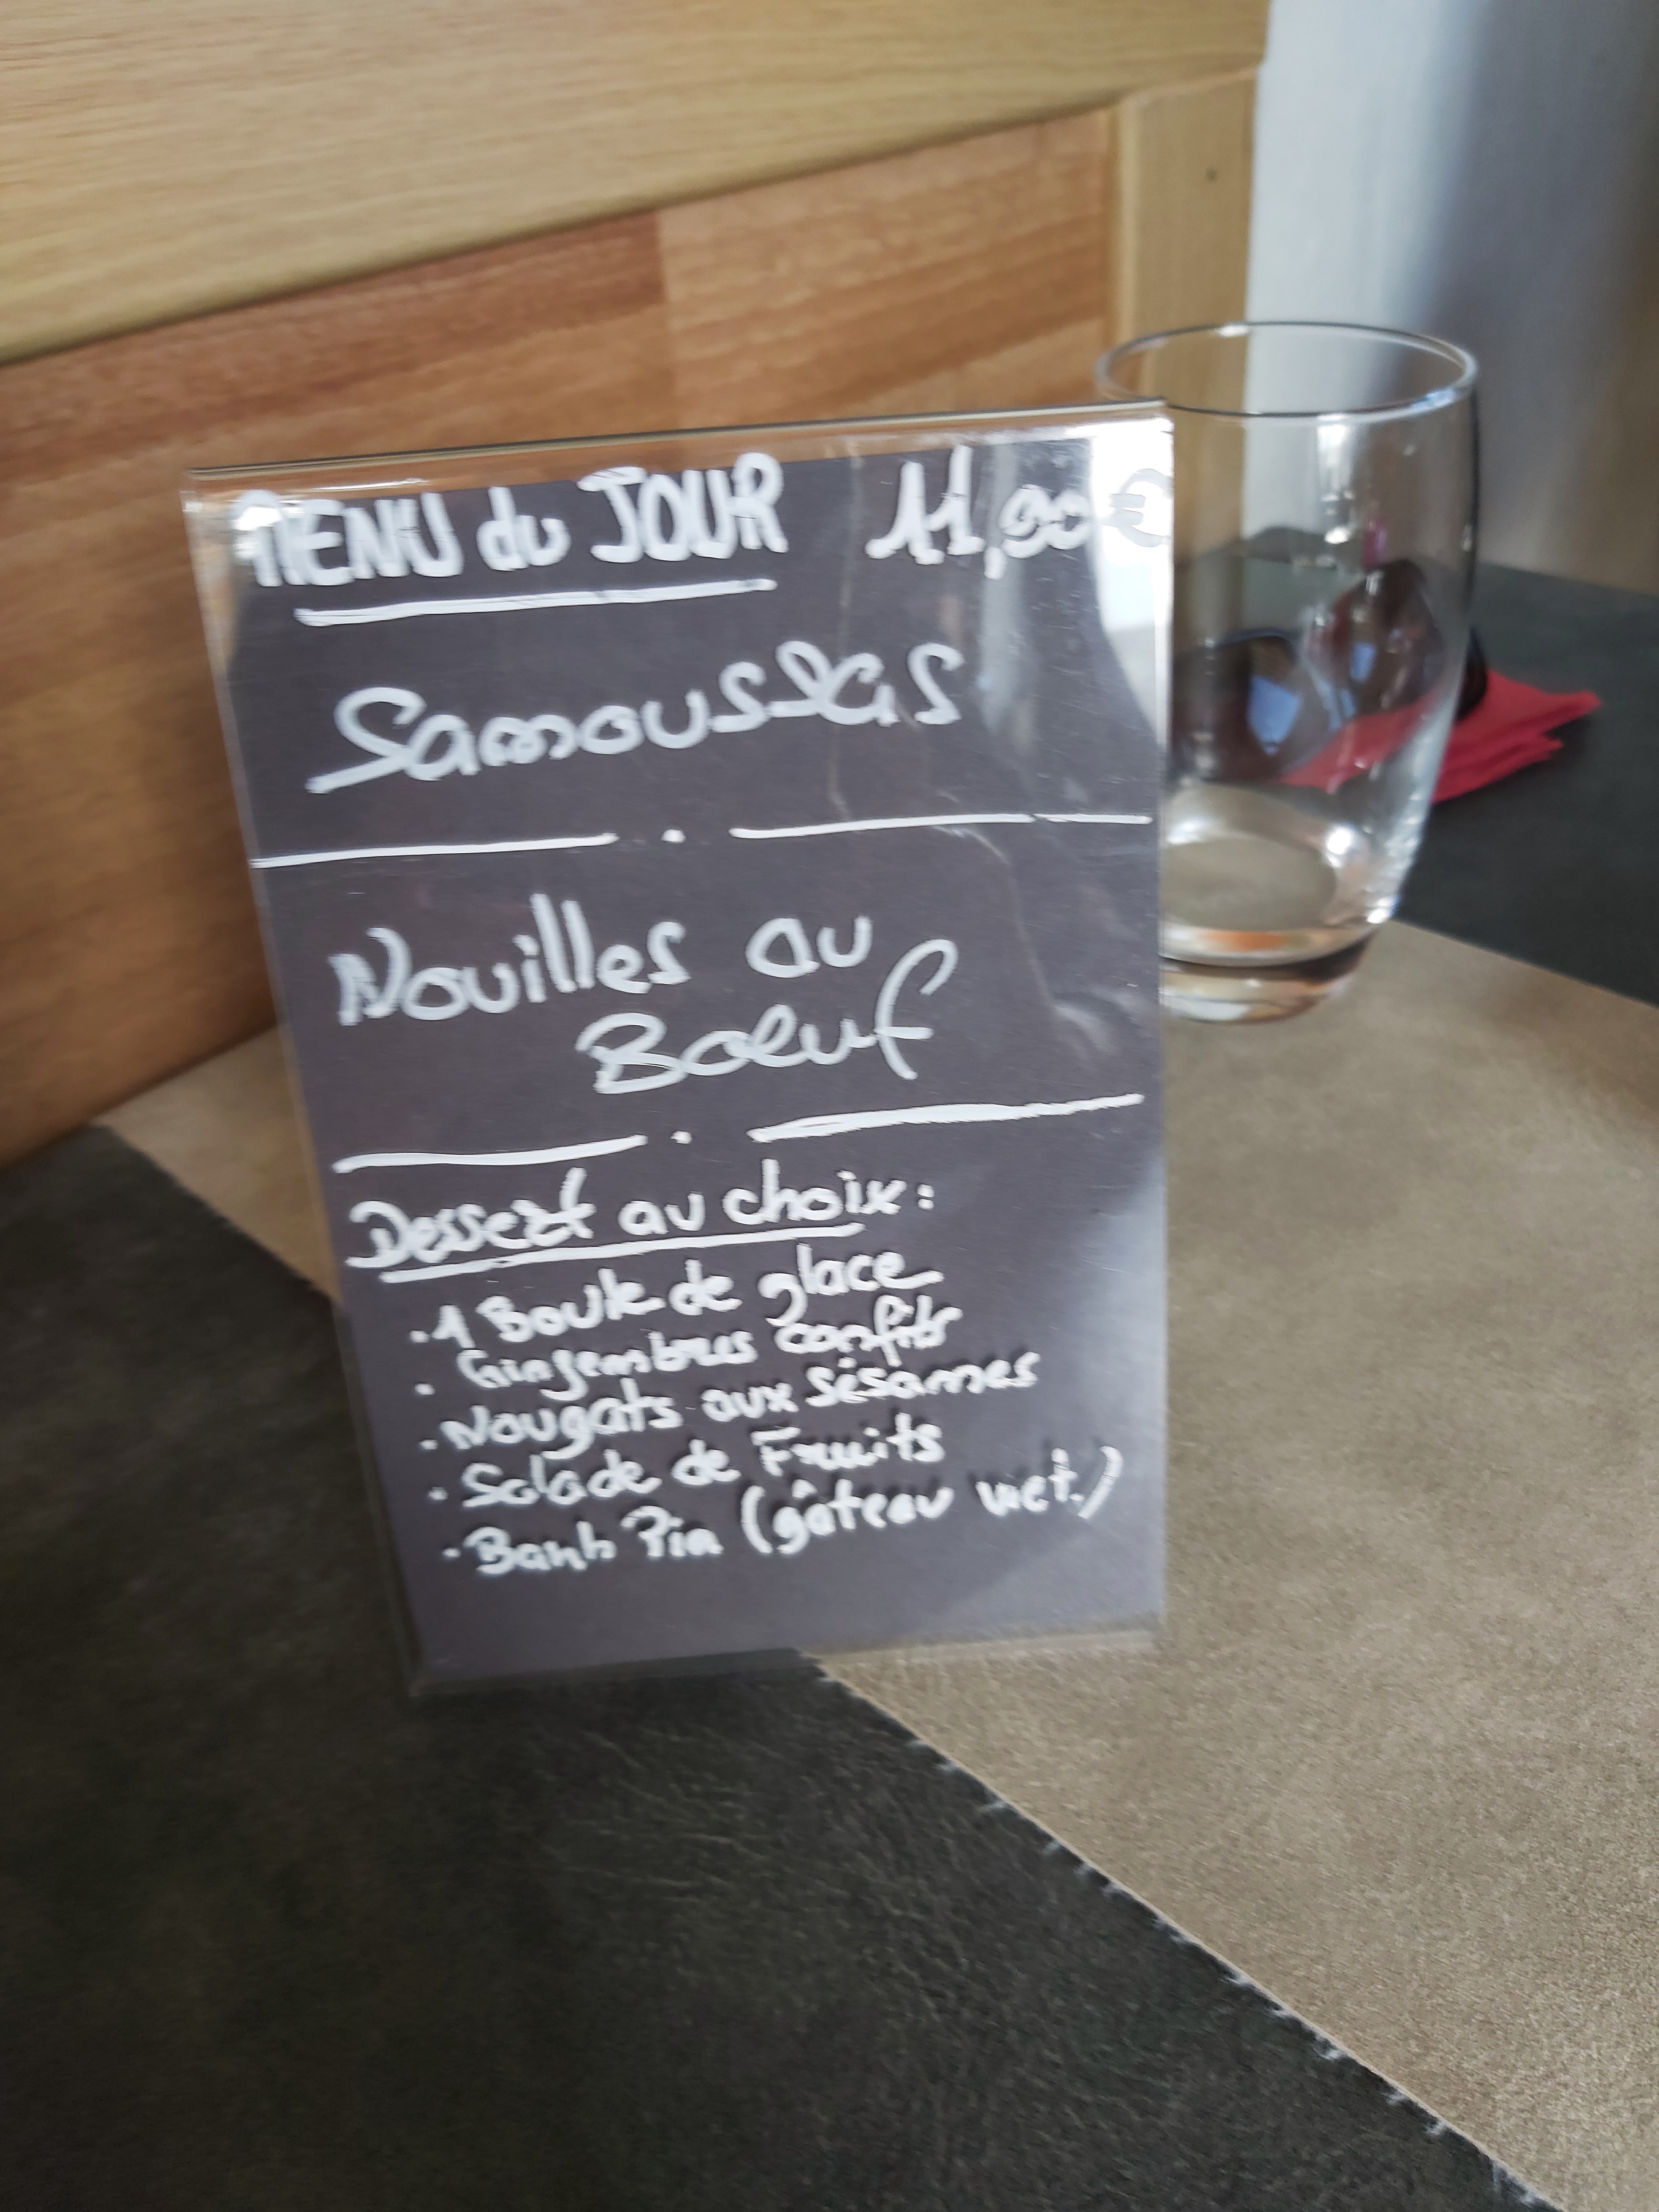 MENU du JOUR 11,90€
Samoussas
Nouilles au
Boeuf
Dessert au choix:
. 1 Boule de glace
. Gingembres confits
. Nougats aux sésames
. Salade de Fruits
. Banh Pia (gâteau viet.)